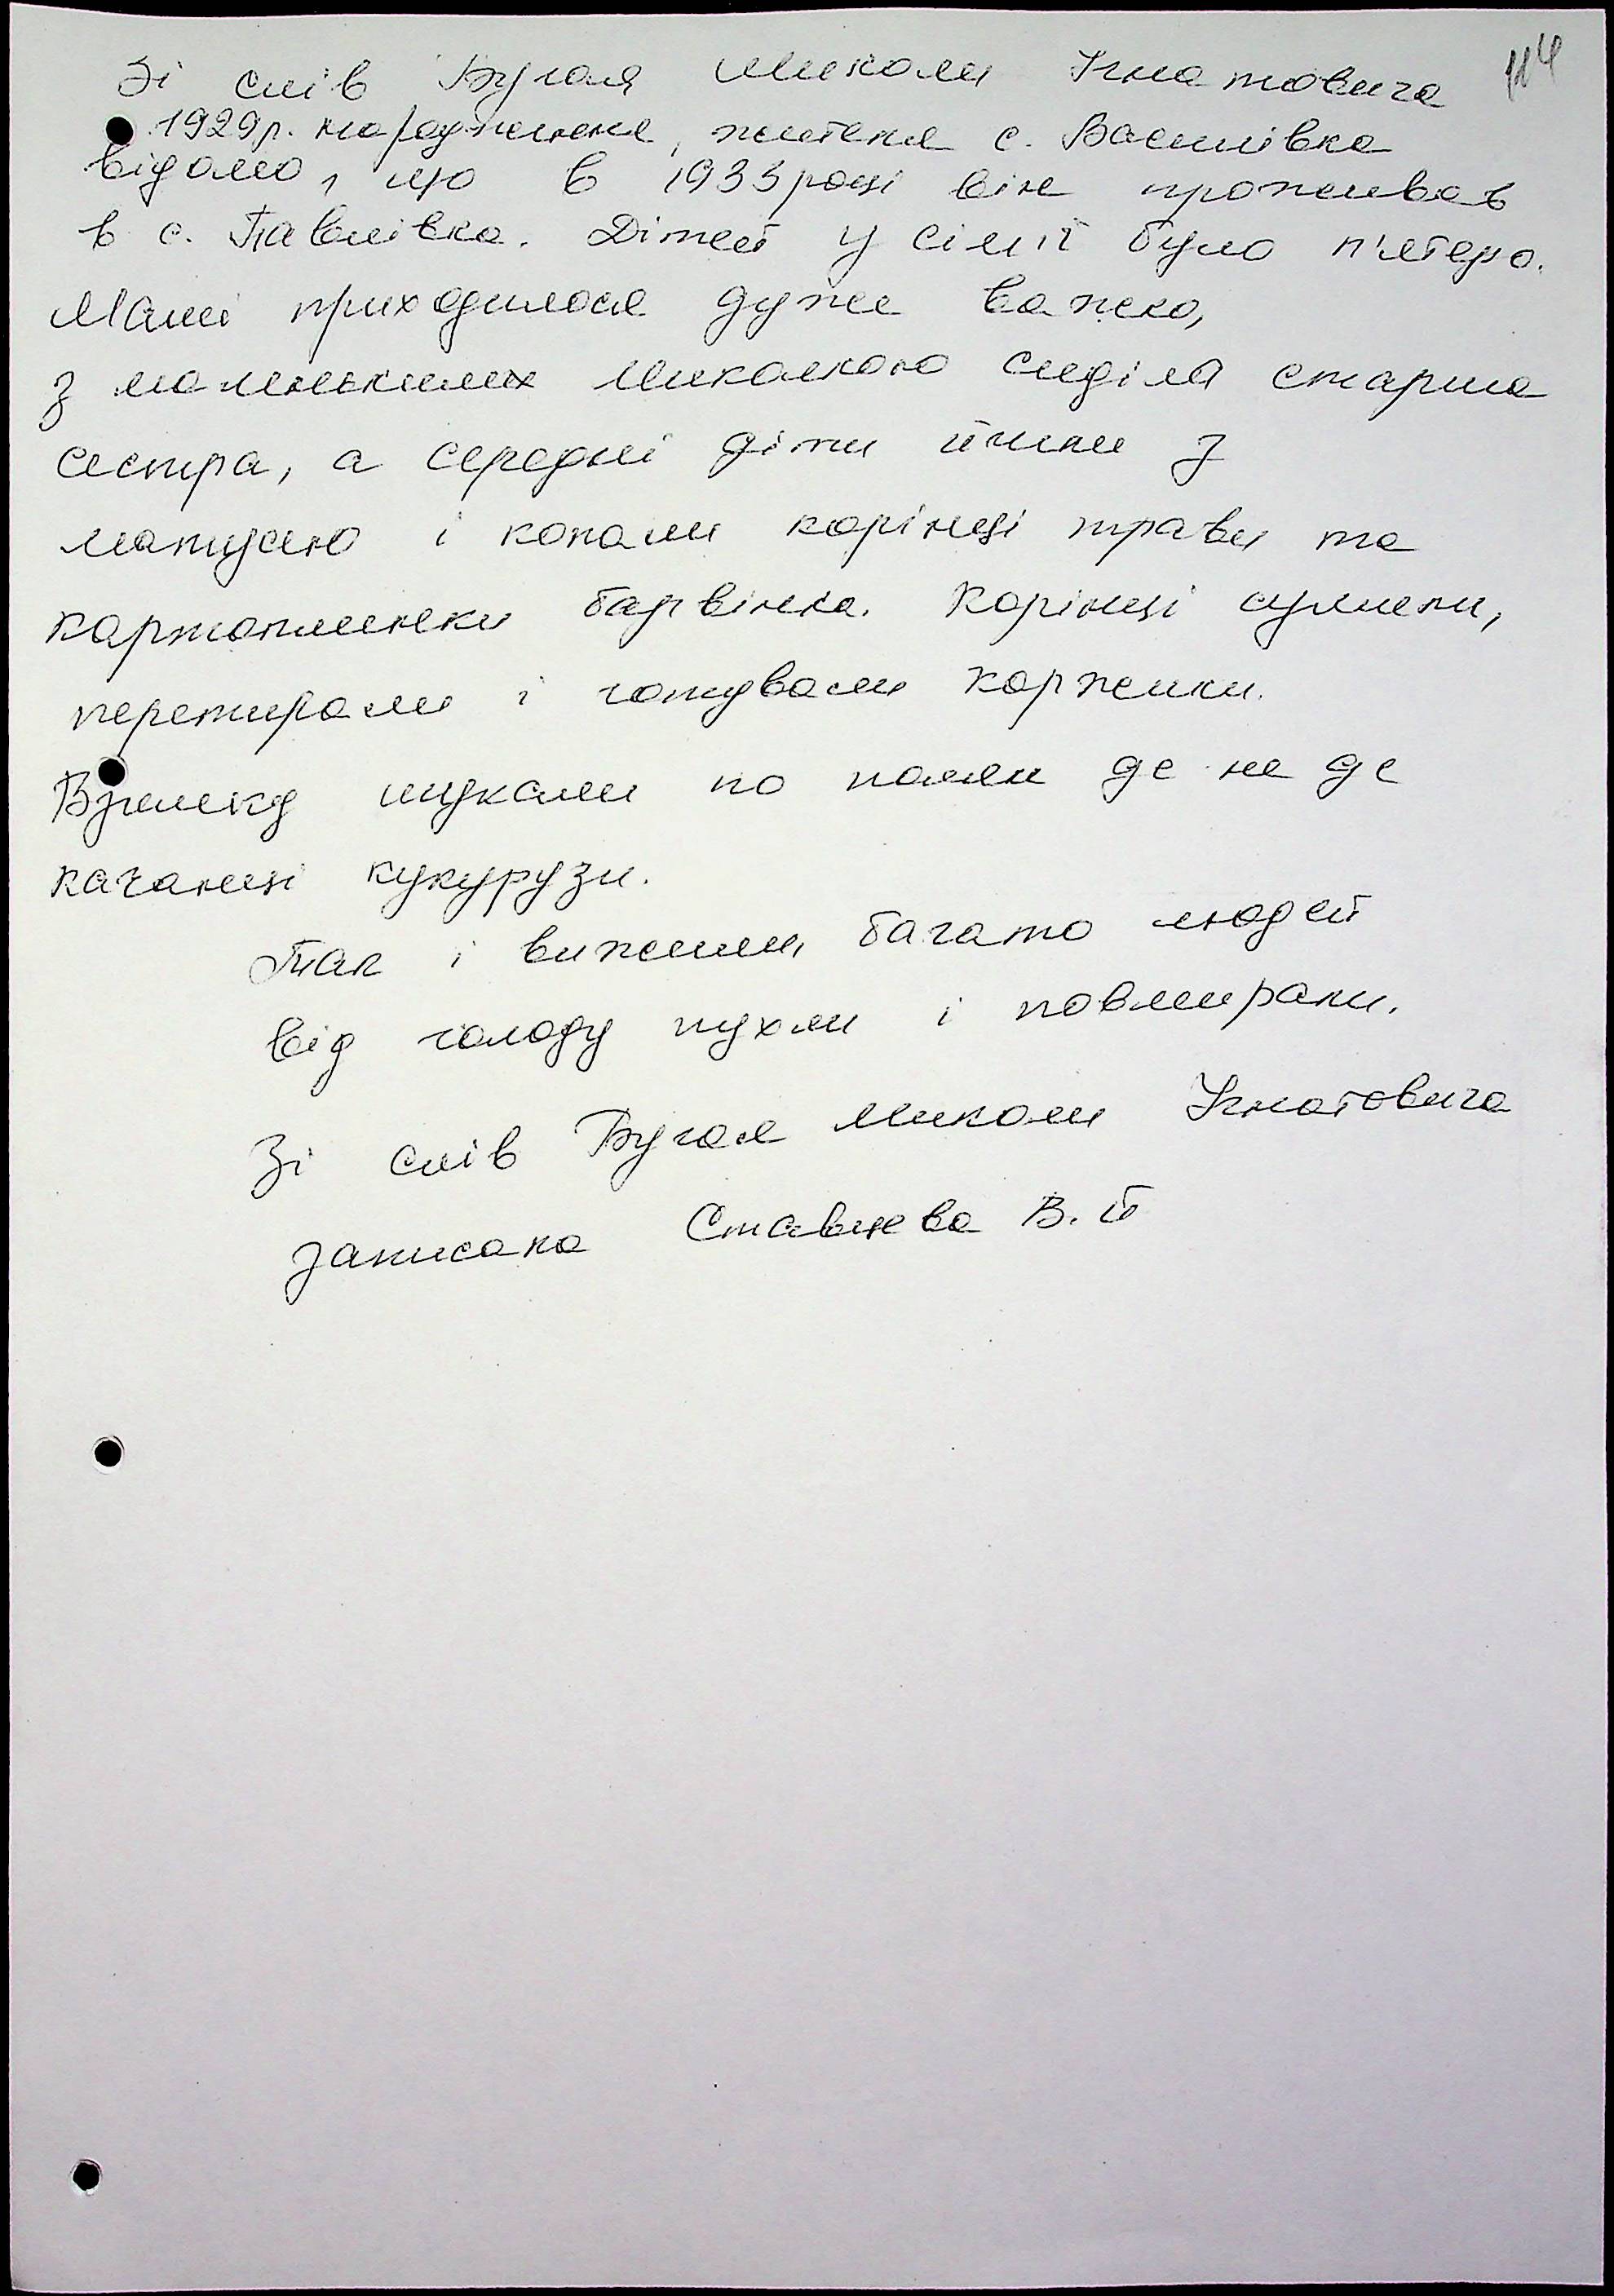 114
Зі слів Бугая Миколи Ігнатовича
1929р. народження, жителя с. Василівка
відомо, що в 1933 році він проживав
в с. Павлівка. Дітей у сім'ї було п'ятеро.
Мамі приходилося дуже важко,
з маленьким Миколкою сиділа старша
сестра, а середні діти йшли з
матусею і копали корінці трави та
картоплиники барвінка. Корінці сушили,
перетирали і готували коржики.
Взимку шукали по полям де не де
качанці кукурузи.
Так і вижили, багато людей
від голоду пухли і повмирали.
Зі слів Бугая Миколи Ігнатовича
записала Ставцева В. Й